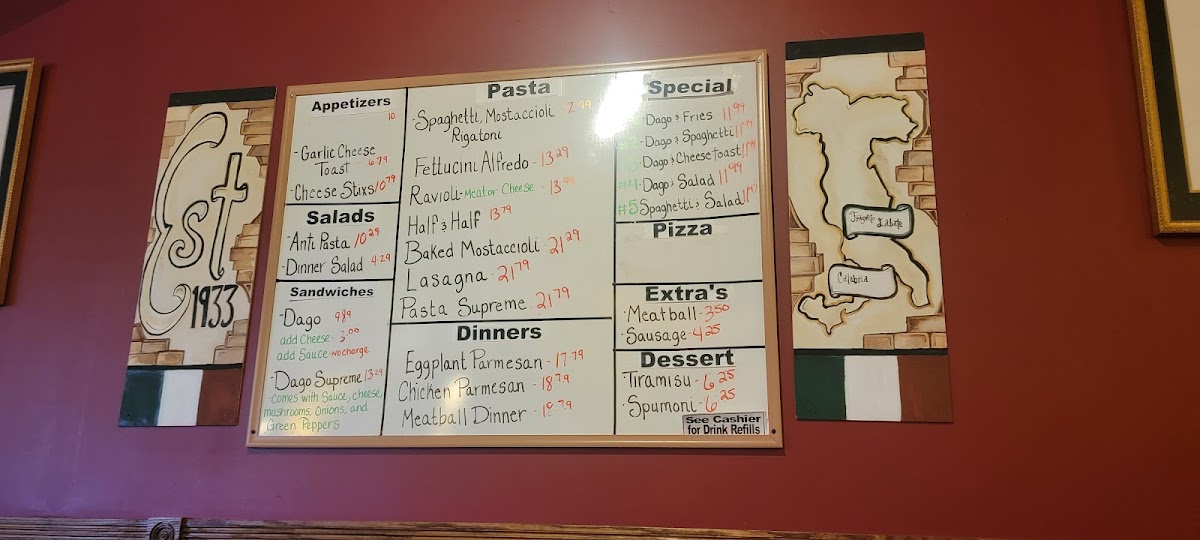 Est
1933
Appetizers
10
- Garlic Cheese
Toast 6.79
- Cheese Stixs 10.79
Salads
- Anti Pasta 10.29
- Dinner Salad 4.29
Sandwiches
- Dago 9.89
add Cheese - 3.00
add Sauce - No charge
- Dago Supreme 13.29
- comes with Sauce, cheese,
mushrooms, Onions, and
Green Peppers
Pasta
- Spaghetti, Mostaccioli
Rigatoni
Fettucini Alfredo - 13.29
Ravioli - Meat or Cheese - 13.99
Half & Half 13.79
Baked Mostaccioli - 21.29
Lasagna - 21.79
Pasta Supreme - 21.79
Dinners
Eggplant Parmesan - 17.79
Chicken Parmesan - 18.79
Meatball Dinner - 18.79
Special
- Dago & Fries 11.99
- Dago & Spaghetti 11.99
- Dago & Cheese toast 11.99
#4 - Dago & Salad 11.99
#5 Spaghetti & Salad
Pizza
Extra's
- Meatball - 3.50
- Sausage - 4.25
Dessert
- Tiramisu - 6.25
- Spumoni - 6.25
See Cashier
for Drink Refills
Calabria